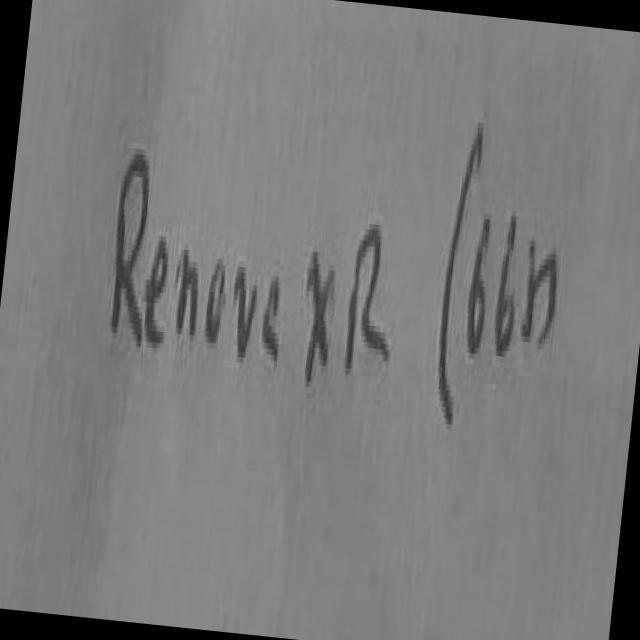 Remove XR (660